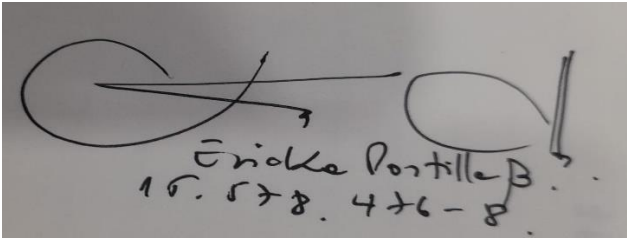 Ericka Portilla B.
15.578.476-8.